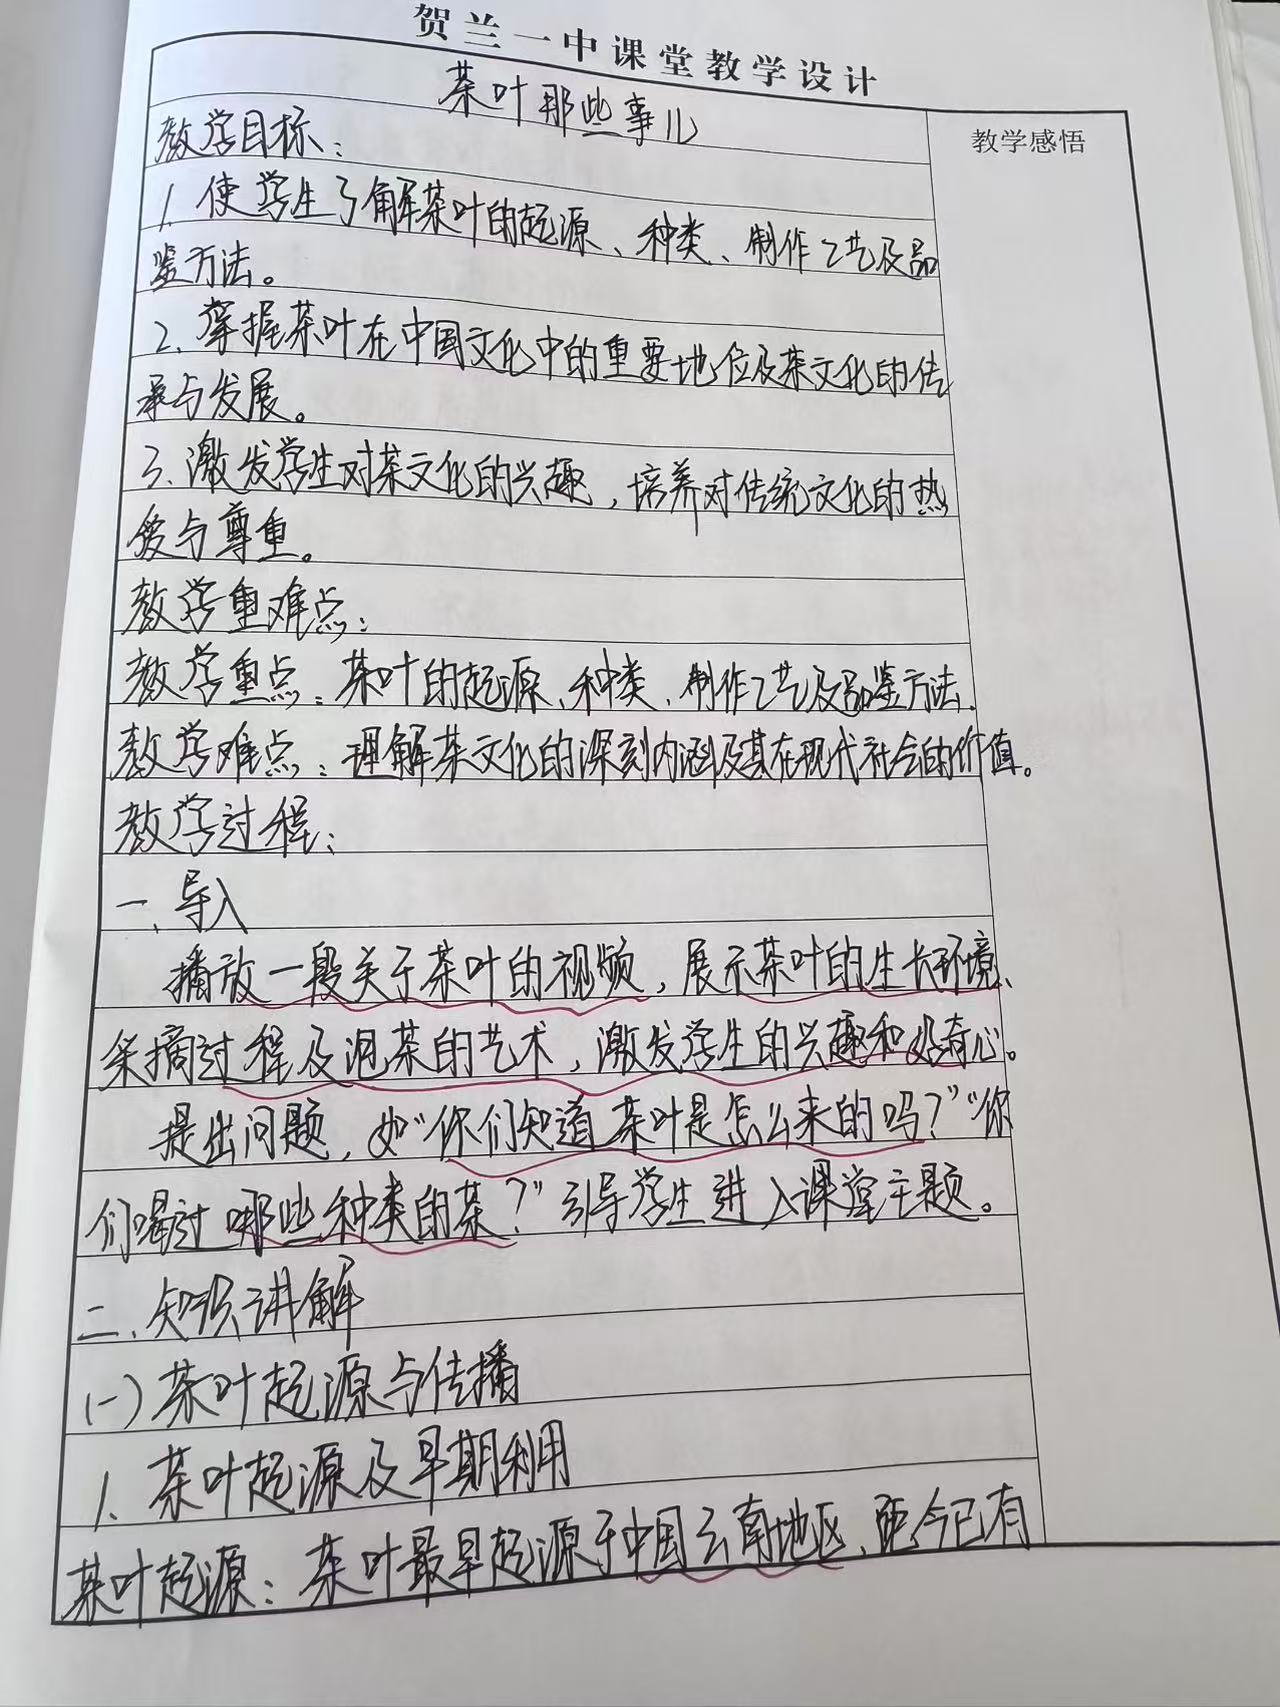 贺兰一中课堂教学设计
茶叶那些事儿
教学感悟
教学目标:
1. 使学生了解茶叶的起源、种类、制作工艺及品
鉴方法。
2. 掌握茶叶在中国文化中的重要地位及茶文化的传
承与发展。
3. 激发学生对茶文化的兴趣,培养对传统文化的热
爱与尊重。
教学重难点:
教学重点:茶叶的起源、种类、制作工艺及品鉴方法.
教学难点:理解茶文化的深刻内涵及其在现代社会的价值。
教学过程:
一、导入
播放一段关于茶叶的视频,展示茶叶的生长环境、
采摘过程及泡茶的艺术,激发学生的兴趣和好奇心。
提出问题,如“你们知道茶叶是怎么来的吗?”“你
们喝过哪些种类的茶?”引导学生进入课堂主题。
二、知识讲解
(一)茶叶起源与传播
1. 茶叶起源及早期利用
茶叶起源:茶叶最早起源于中国云南地区,距今已有